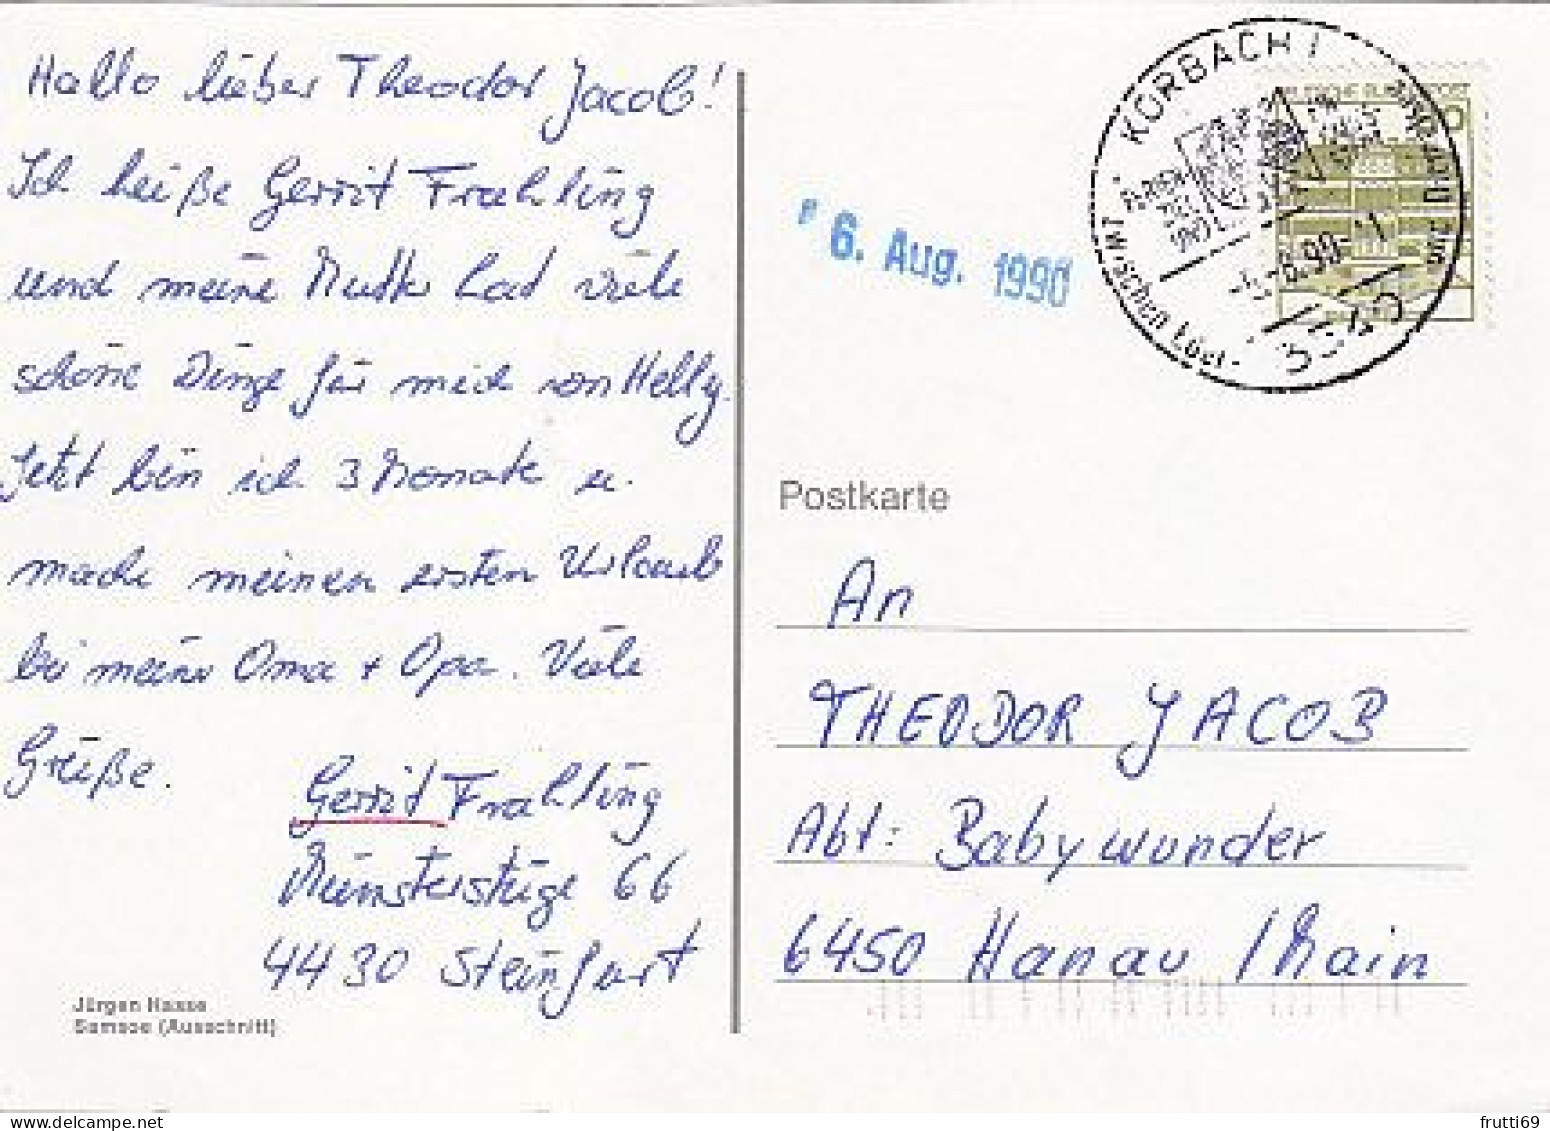 Hallo lieber Theodor Jacob!
Ich heiße Gerrit Frahling
und meine Mutter hat viele
schöne Dinge für mich von Helly.
Jetzt bin ich 3 Monate u.
mache meinen ersten Urlaub
bei meiner Oma + Opa. Viele
Grüße.
Gerrit Frahling
Münsterstiege 66
4430 Steinfurt
Jürgen Haase
Samsoe (Ausschnitt)
KORBACH 1
DEUTSCHE BUNDESPOST
-5.-8.90-11
6. Aug. 1990
Postkarte
An
THEODOR JACOB
Abt: Babywunder
6450 Hanau / Main
frutti69